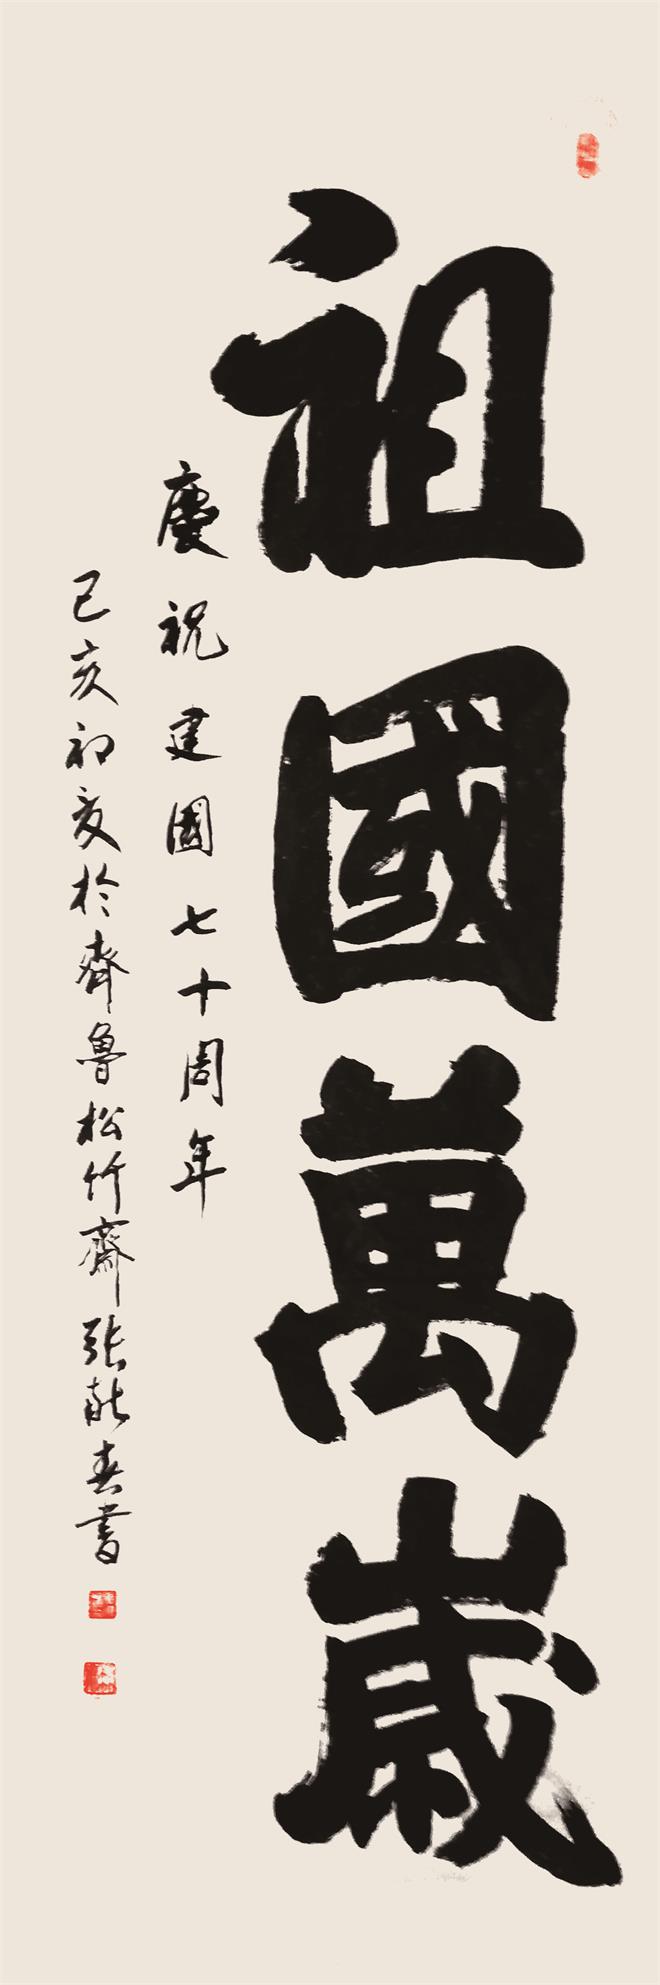 祖國萬歲
慶祝建國七十周年
己亥初夏於齊魯松竹齋張献春書